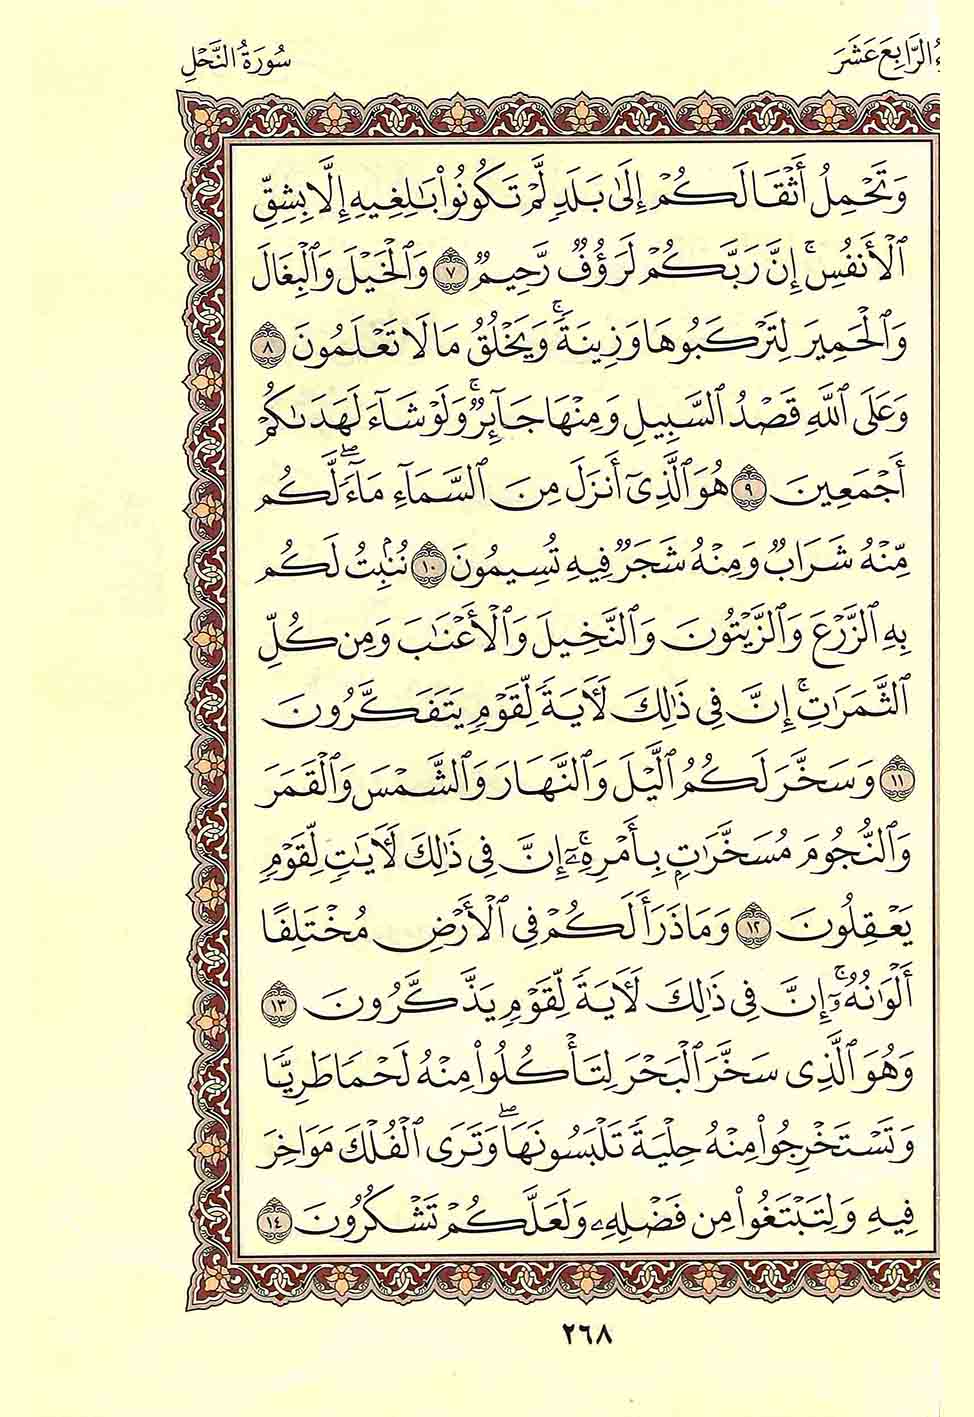 ءُ الرَّابِعَ عَشَرَ سُورَةُ النَّحْلِ
وَتَحْمِلُ أَثْقَالَكُمْ إِلَىٰ بَلَدٍ لَّمْ تَكُونُوا۟ بَٰلِغِيهِ إِلَّا بِشِقِّ
ٱلْأَنفُسِ ۚ إِنَّ رَبَّكُمْ لَرَءُوفٌ رَّحِيمٌ ٧ وَٱلْخَيْلَ وَٱلْبِغَالَ
وَٱلْحَمِيرَ لِتَرْكَبُوهَا وَزِينَةً ۚ وَيَخْلُقُ مَا لَا تَعْلَمُونَ ٨
وَعَلَى ٱللَّهِ قَصْدُ ٱلسَّبِيلِ وَمِنْهَا جَآئِرٌ ۚ وَلَوْ شَآءَ لَهَدَىٰكُمْ
أَجْمَعِينَ ٩ هُوَ ٱلَّذِىٓ أَنزَلَ مِنَ ٱلسَّمَآءِ مَآءً ۖ لَّكُم
مِّنْهُ شَرَابٌ وَمِنْهُ شَجَرٌ فِيهِ تُسِيمُونَ ١٠ يُنۢبِتُ لَكُم
بِهِ ٱلزَّرْعَ وَٱلزَّيْتُونَ وَٱلنَّخِيلَ وَٱلْأَعْنَٰبَ وَمِن كُلِّ
ٱلثَّمَرَٰتِ ۗ إِنَّ فِى ذَٰلِكَ لَءَايَةً لِّقَوْمٍ يَتَفَكَّرُونَ
١١ وَسَخَّرَ لَكُمُ ٱلَّيْلَ وَٱلنَّهَارَ وَٱلشَّمْسَ وَٱلْقَمَرَ
وَٱلنُّجُومَ مُسَخَّرَٰتٍۭ بِأَمْرِهِۦٓ ۚ إِنَّ فِى ذَٰلِكَ لَءَايَٰتٍ لِّقَوْمٍ
يَعْقِلُونَ ١٢ وَمَا ذَرَأَ لَكُمْ فِى ٱلْأَرْضِ مُخْتَلِفًا
أَلْوَٰنُهُۥٓ ۚ إِنَّ فِى ذَٰلِكَ لَءَايَةً لِّقَوْمٍ يَذَّكَّرُونَ ١٣
وَهُوَ ٱلَّذِى سَخَّرَ ٱلْبَحْرَ لِتَأْكُلُوا۟ مِنْهُ لَحْمًا طَرِيًّا
وَتَسْتَخْرِجُوا۟ مِنْهُ حِلْيَةً تَلْبَسُونَهَا ۖ وَتَرَى ٱلْفُلْكَ مَوَاخِرَ
فِيهِ وَلِتَبْتَغُوا۟ مِن فَضْلِهِۦ وَلَعَلَّكُمْ تَشْكُرُونَ ١٤
٢٦٨